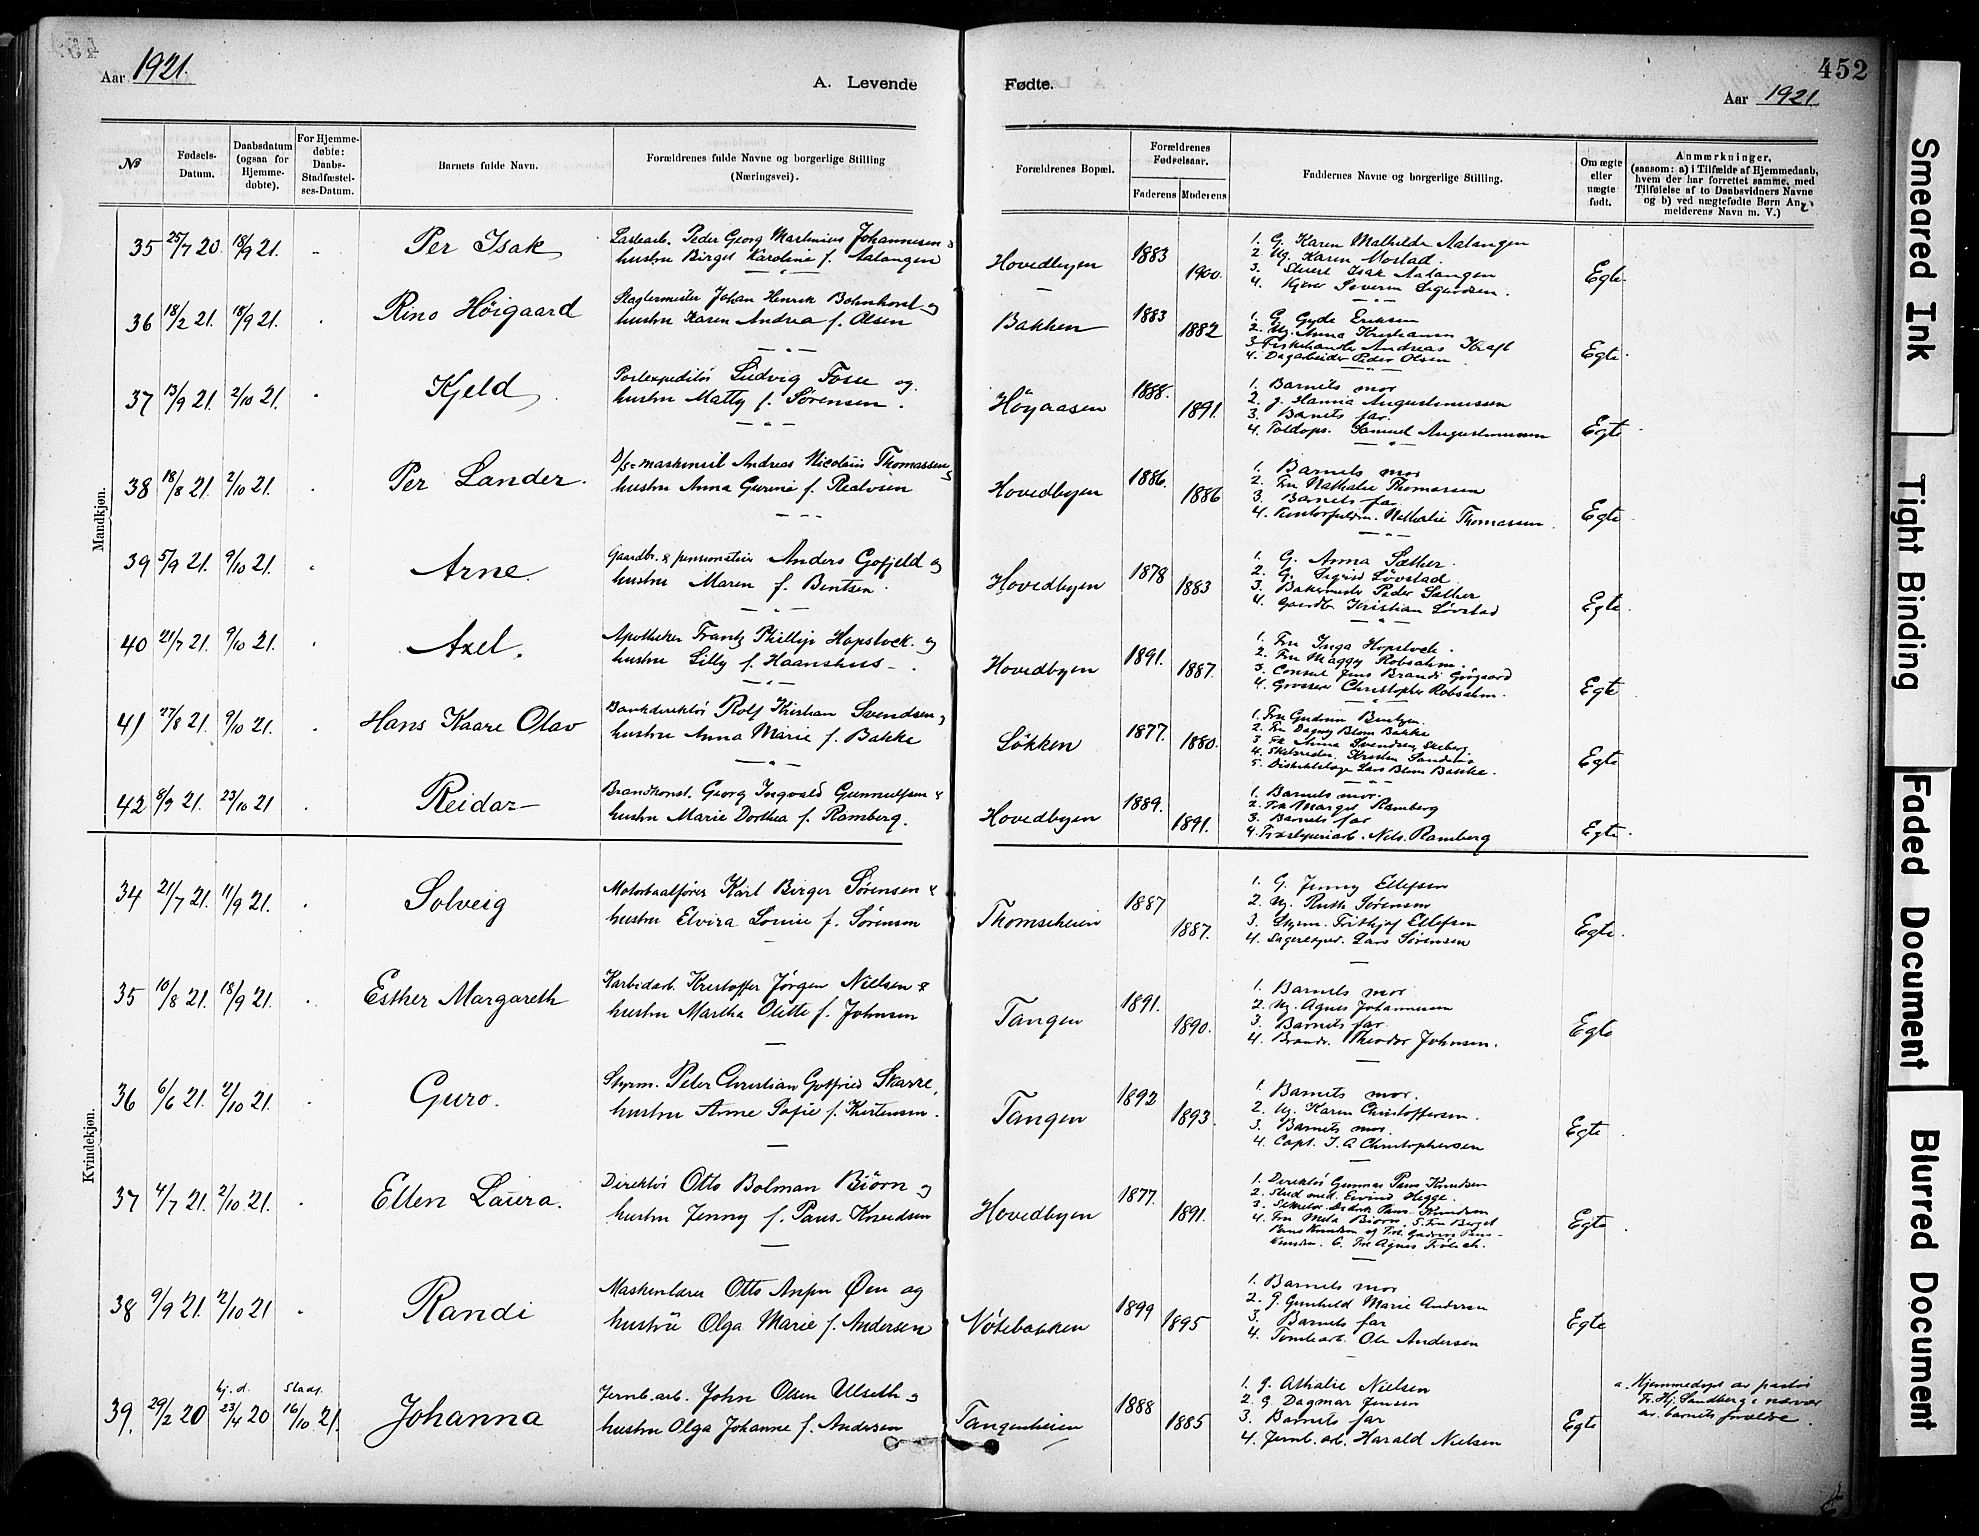 Aar 1921.
A. Levende
Fødte.
452
Aar 1921
№
Fødsels-Datum.
Daabsdatum (ogsaa for Hjemme-døbte).
For Hjemme-døbte: Daabs-Stadfæstel-ses-Datum.
Barnets fulde Navn.
Forældrenes fulde Navne og borgerlige Stilling (Næringsvei).
Forældrenes Bopæl.
Forældrenes Fødselsaar.
Faderens
Moderens
Faddernes Navne og borgerlige Stilling.
Om ægte eller uægte født.
Anmærkninger, (saasom: a) i Tilfælde af Hjemmedaab, hvem der har forrettet samme, med Tilføielse af to Daabsvidners Navne og b) ved uægtefødte Børn An-melderens Navn m. V.)
Mandkjøn.
35 25/7 20. 18/9 21. Per Isak
Peder Georg Martinius Johannesen &
hustru Birget Karoline f. Aalangen
Hovedbyen 1883 1900.
1. G. Karen Mathilde Aalangen
2. Ug. Karen Mostad.
3. Isak Aalangen
4. Severin Sigurdsen.
Egte.
36 18/2 21. 18/9 21. Rino Höigaard
Slagtermester Johan Henrik Bohnhorst og
hustru Karen Andrea f. Olsen
Bakken 1883 1882
1. G. Gyda Eriksen
2. Ug. Anna Kristiansen
3. Fiskehandler Andreas Kraft
4. Dagarbeider Peder Olsen
Egte.
37 13/9 21. 2/10 21. Kjeld
Postexpeditör Ludvig Fosse og
hustru Matty f. Sörensen.
Höyaasen 1888. 1891.
1. Barnets mor
2. g. Hanna Augustinussen
3. Barnets far.
4. Toldops. Samuel Augustinussen
Egte
38 18/8 21. 2/10 21. Per Lander.
D/s-maskinist Andreas Nicolais Thomassen &
hustru Anna Gurine f. Realvsen
Hovedbyen 1886. 1886
1. Barnets mor
2. Fru Nathalie Thomassen
3. Barnets far
4. Nathalie Thomassen.
Egte.
39 5/9 21. 9/10 21. Arne.
Gaardbr. & pensionatier Anders Gofjeld og
hustru Maren f. Bentsen.
Hovedbyen 1878 1883
1. G. Anna Sæther.
2. G. Sigrid Lövstad.
3. Bakermester Peder Sæther
4. Gaardbr. Kristian Lövstad
Egte.
40 21/7 21. 9/10 21. Axel.
Apotheker Frantz Phillip Hopstock og
hustru Lilly f. Haanshus.
Hovedbyen 1891. 1887.
1. Fru Inga Hopstock.
2. Fru Maggy Robsahm.
3. Consul Jens Brandi Grögaard
4. Grosserer Christopher Robsahm.
Egte
41 27/8 21. 9/10 21. Hans Kaare Olav
Bankdirektör Rolf Kristian Svendsen og
hustru Anna Marie f. Bakke
Lökken 1877. 1880.
1. Fru Gudrun Bentzen.
2. Fru Dagny Blom Bakke
3. Fr. Anna Svendsen Skeberg.
4. Skibsreder Kristen Sandnes
5. Distriktslæge Lars Blom Bakke.
Egte
42 8/7 21. 23/10 21 Reidar
Brandkonst. Georg Ingvald Gunnulfsen &
hustru Marie Dorthea f. Ramberg.
Hovedbyen 1889. 1891.
1. Barnets mor.
2. Fr. Margit Ramberg
3. Barnets far
4. Nels. Ramberg
Egte.
Kvindekjøn.
34 21/7 21. 11/9 21. Solveig
Motorbaatförer Karl Birger Sörensen &
hustru Elvira Louise f. Sörensen
Thomsenheien 1887 1887.
1. G. Jenny Ellefsen
2. Ug. Ruth Sörensen
3. Styrm. Fritjof Ellefsen
4. Lagerexped. Lars Sörensen
Egte.
35 10/8 21. 18/9 21. Esther Margareth
Karbidarb. Kristoffer Jörgen Nielsen &
hustru Martha Olette f. Johnsen
Tangen 1891. 1890.
1. Barnets mor
2. Ug. Agnes Johannesen
3. Barnets far.
4. Brandk. Theodor Johnsen.
Egte
36 6/6 21. 2/10 21. Guro.
Styrm. Peter Christian Gotfried Skarre,
hustru Anne Sofie f. Kristensen.
Tangen 1892 1893.
1. Barnets mor.
2. Ug. Karen Christoffersen.
3. Barnets mor.
4. Capt. I. A Christophersen
Egte
37 4/7 21. 2/10 21. Ellen Laura.
Direktör Otto Bolman Biörn og
hustru Jenny f. Paus-Knudsen
Hovedbyen 1877. 1891.
1. Direktör Gunnar Paus Knudsen
2. Stud med. Eivind Hegge.
3. Paus-Knudsen
4. Fru Meta Biörn. 5. Fru Berget
Paus Knudsen og Frk. Paus-
Knudsen. 6. Frk Agnes Frölich.
Egte.
38 9/9 21. 2/10 21 Randi
Maskinlærer Otto Øen og
hustru Olga Marie f. Andersen
Nötebakken 1899 1895
1. Barnets mor
2. g. Gunhild Marie Andersen
3. Barnets far
4. Tomtearb. Ole Andersen
Egte
39. 29/2 20 hj.d. 23/4 20 Stadf. 16/10 21. Johanna
Jernb.arb. John Olsen Ulseth og
hustru Olga Johanne f. Andersen
Tangenheien 1888 1885
1. g. Athalie Nielsen
2. G. Dagmar Jensen
3. Barnets far
4. Jernb. arb. Harald Nielsen
Egte
a. Hjemmedøpt av pastör
Fr. Hj. Sandberg i nærvær
av barnets forældre.
Smeared Ink
Tight Binding
Faded Document
Blurred Document